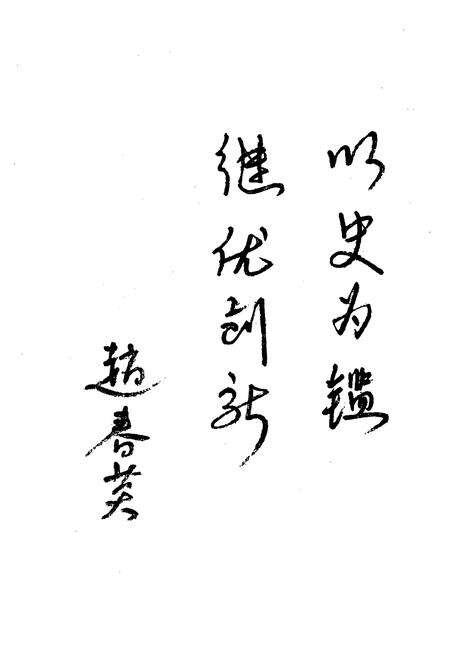 以史为鑑
继优创新
趙春英